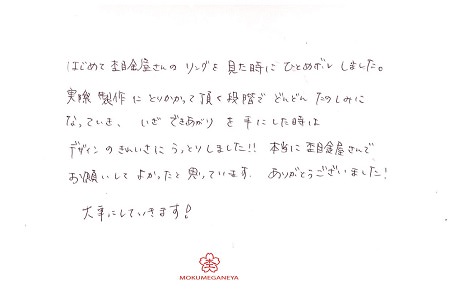 はじめて杢目金屋さんのリングを見た時にひとめボレしました。
実際製作にとりかかって頂く段階でどんどんたのしみに
なっていき、いざできあがりを手にした時は
デザインのきれいさにうっとりしました!!本当に杢目金屋さんで
お願いしてよかったと思っています。ありがとうございました!
大事にしていきます!
MOKUMEGANEYA